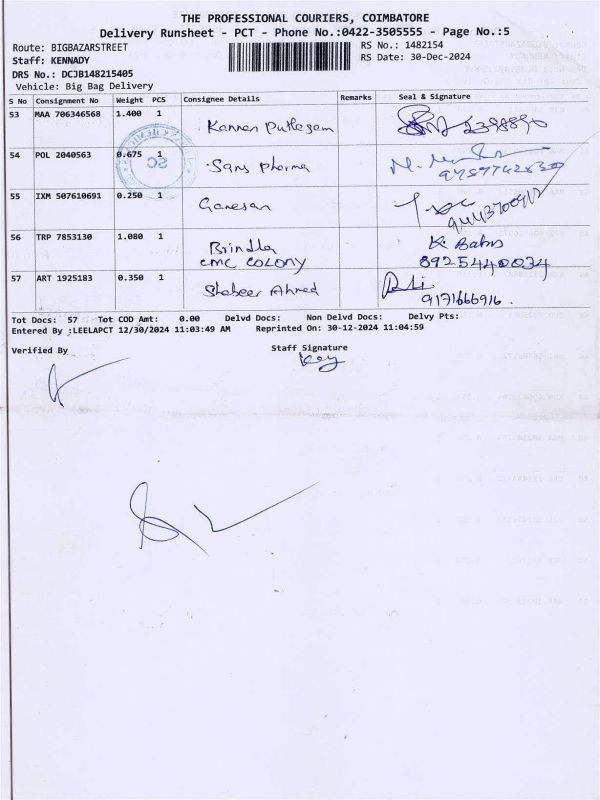 THE PROFESSIONAL COURIERS, COIMBATORE
Delivery Runsheet - PCT - Phone No.:0422-3505555 - Page No.:5
Route: BIGBAZARSTREET
RS No.: 1482154
Staff: KENNADY
RS Date: 30-Dec-2024
DRS No.: DCJB148215405
Vehicle: Big Bag Delivery
S No Consignment No Weight PCS Consignee Details Remarks Seal & Signature
53 MAA 706346568 1.400 1 Kannan
54 POL 2040563 0.675 1 Sans Pharma
55 IXM 507610691 0.250 1 Ganesan
56 TRP 7853130 1.080 1 Brindha K. Babu
CMC COLONY 8925440034
57 ART 1925183 0.350 1 Shabeer Ahmed
9171666916.
Tot Docs: 57 Tot COD Amt: 0.00 Delvd Docs: Non Delvd Docs: Delvy Pts:
Entered By :LEELAPCT 12/30/2024 11:03:49 AM Reprinted On: 30-12-2024 11:04:59
Verified By
Staff Signature